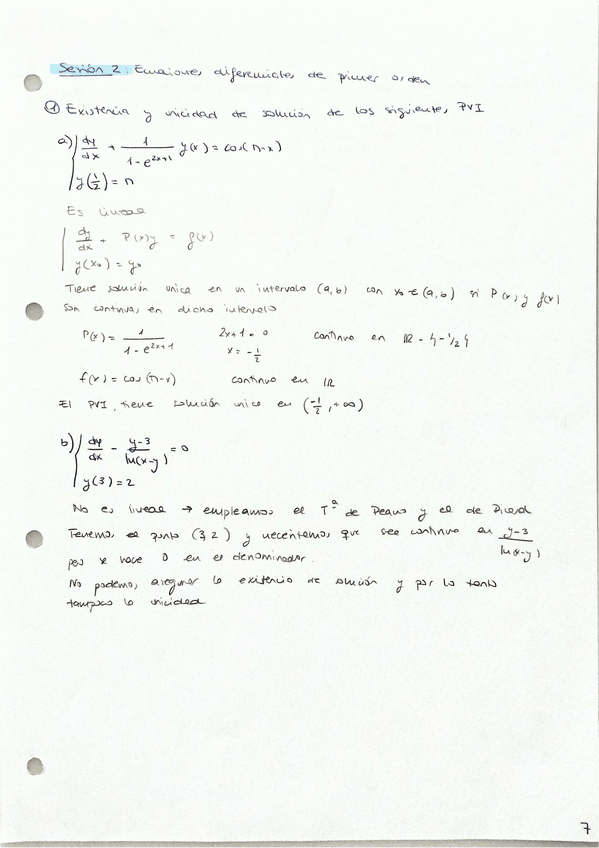 Sesión 2: Ecuaciones diferenciales de primer orden
① Existencia y unicidad de solución de los siguientes PVI
a) { dy/dx + 1/(1-e^{2x+1}) y(x) = cos(π-x)
y(1/2) = π
Es lineal
dy/dx + P(x)y = f(x)
y(x₀) = y₀
Tiene solución unica en un intervalo (a,b) con x₀ ∈ (a,b) si P(x) y f(x)
son continuas en dicho intervalo
P(x) = 1/(1-e^{2x+1}) 2x+1 = 0 x = -1/2 continuo en ℝ - {-1/2}
f(x) = cos(π-x) continuo en ℝ
El PVI tiene solución unica en (-1/2, +∞)
b) { dy/dx - (y-3)/ln(x-y) = 0
y(3) = 2
No es lineal → empleamos el Tª de Peano y el de Picard
Tenemos el punto (3,2) y necesitamos que sea continuo en (y-3)/ln(x-y)
pero se hace 0 en el denominador.
No podemos asegurar la existencia de solución y por lo tanto
tampoco la unicidad
7